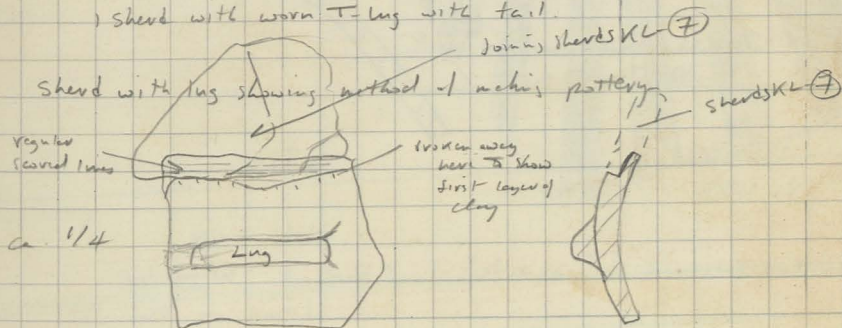 1 sherd with worn T-lug with tail.
Joining sherds KL 7
Sherd with lug showing method of making pottery
sherds KL 7
regular scored lines
broken away here to show first layer of clay
ca. 1/4
Lug